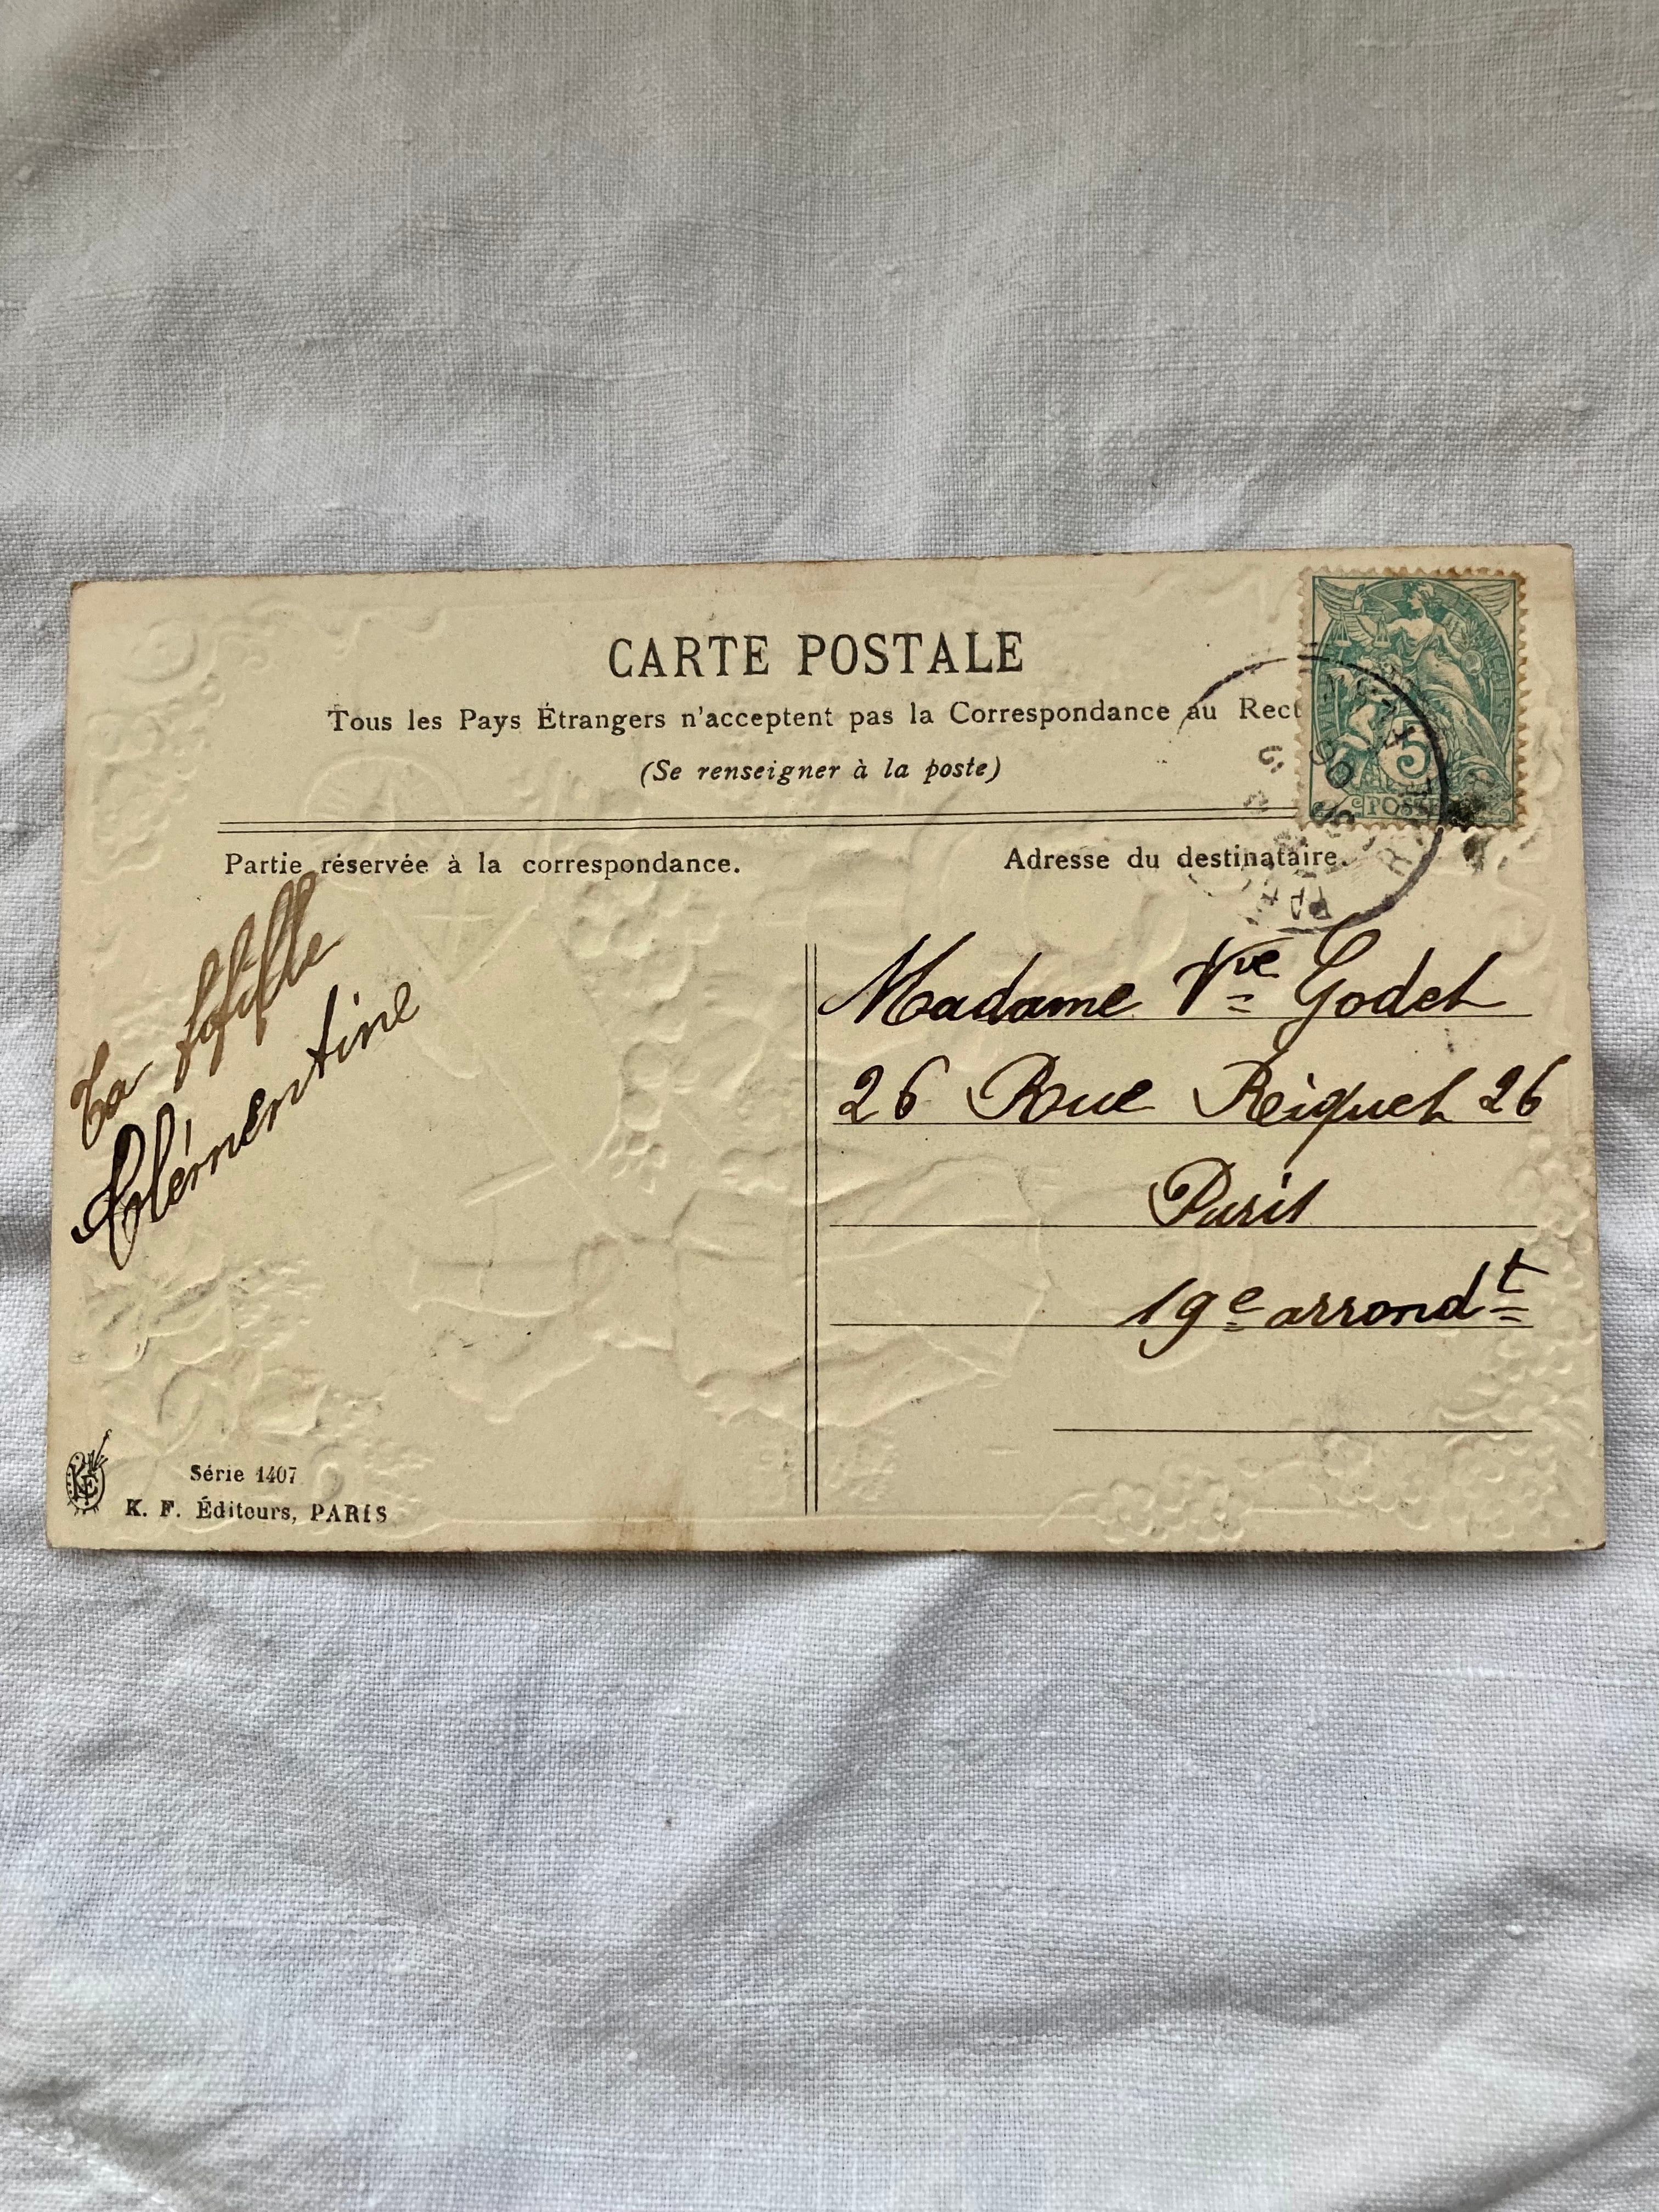 CARTE POSTALE
Tous les Pays Étrangers n'acceptent pas la Correspondance au Rect
(Se renseigner à la poste)
5
POSTE
Partie réservée à la correspondance.
Adresse du destinataire.
Ta
Clémentine
Madame Vve Godet
26 Rue Riquet 26
Paris
19e arrondt
Série 1407
K. F. Éditeurs, PARIS